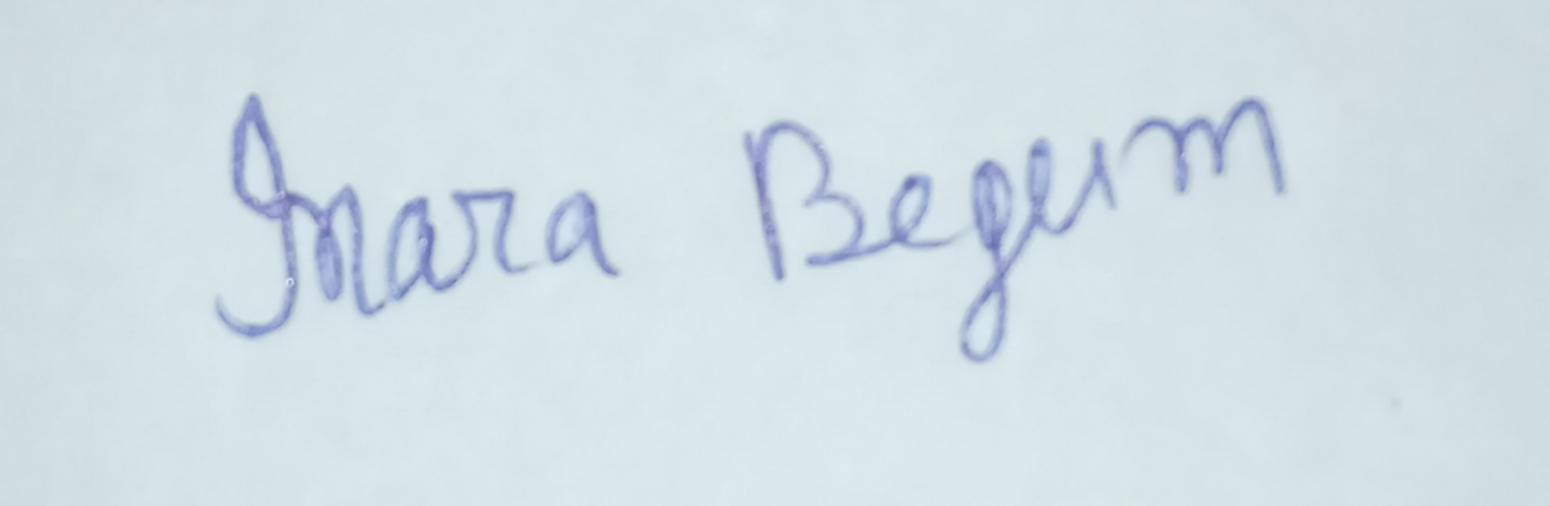 Inara Begum